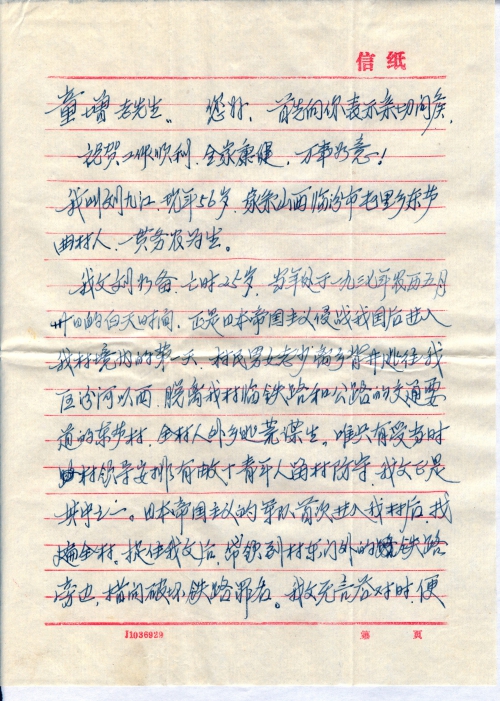 信纸
童增老先生。 您好，首先向你表示亲切问候，
祝贺工作顺利，全家康健，万事如意！
我叫刘九江，现年56岁，家东山西临汾市屯里乡东芦
曲村人，一贯务农为生。
我父刘 备，亡时25岁，当年处于一九三九年农历五月
廿四的白天时间，正是日本帝国主义侵战我国后进入
我村境内的第一天，村民男女老少离乡背井逃往我
区汾河以西，脱离我村临铁路和公路的交通要
道的东芦村，全村人外乡地荒谋生。唯只有受当时
村领导安排有由数十青年人留村防守，我父正是
其中之一。日本帝国主义的军队首次进入我村后，找
遍全村，捉住我父后，带领到村东门外的铁路
旁边，指问破坏铁路罪名。我父无言答对时，便
J1036929 第 页